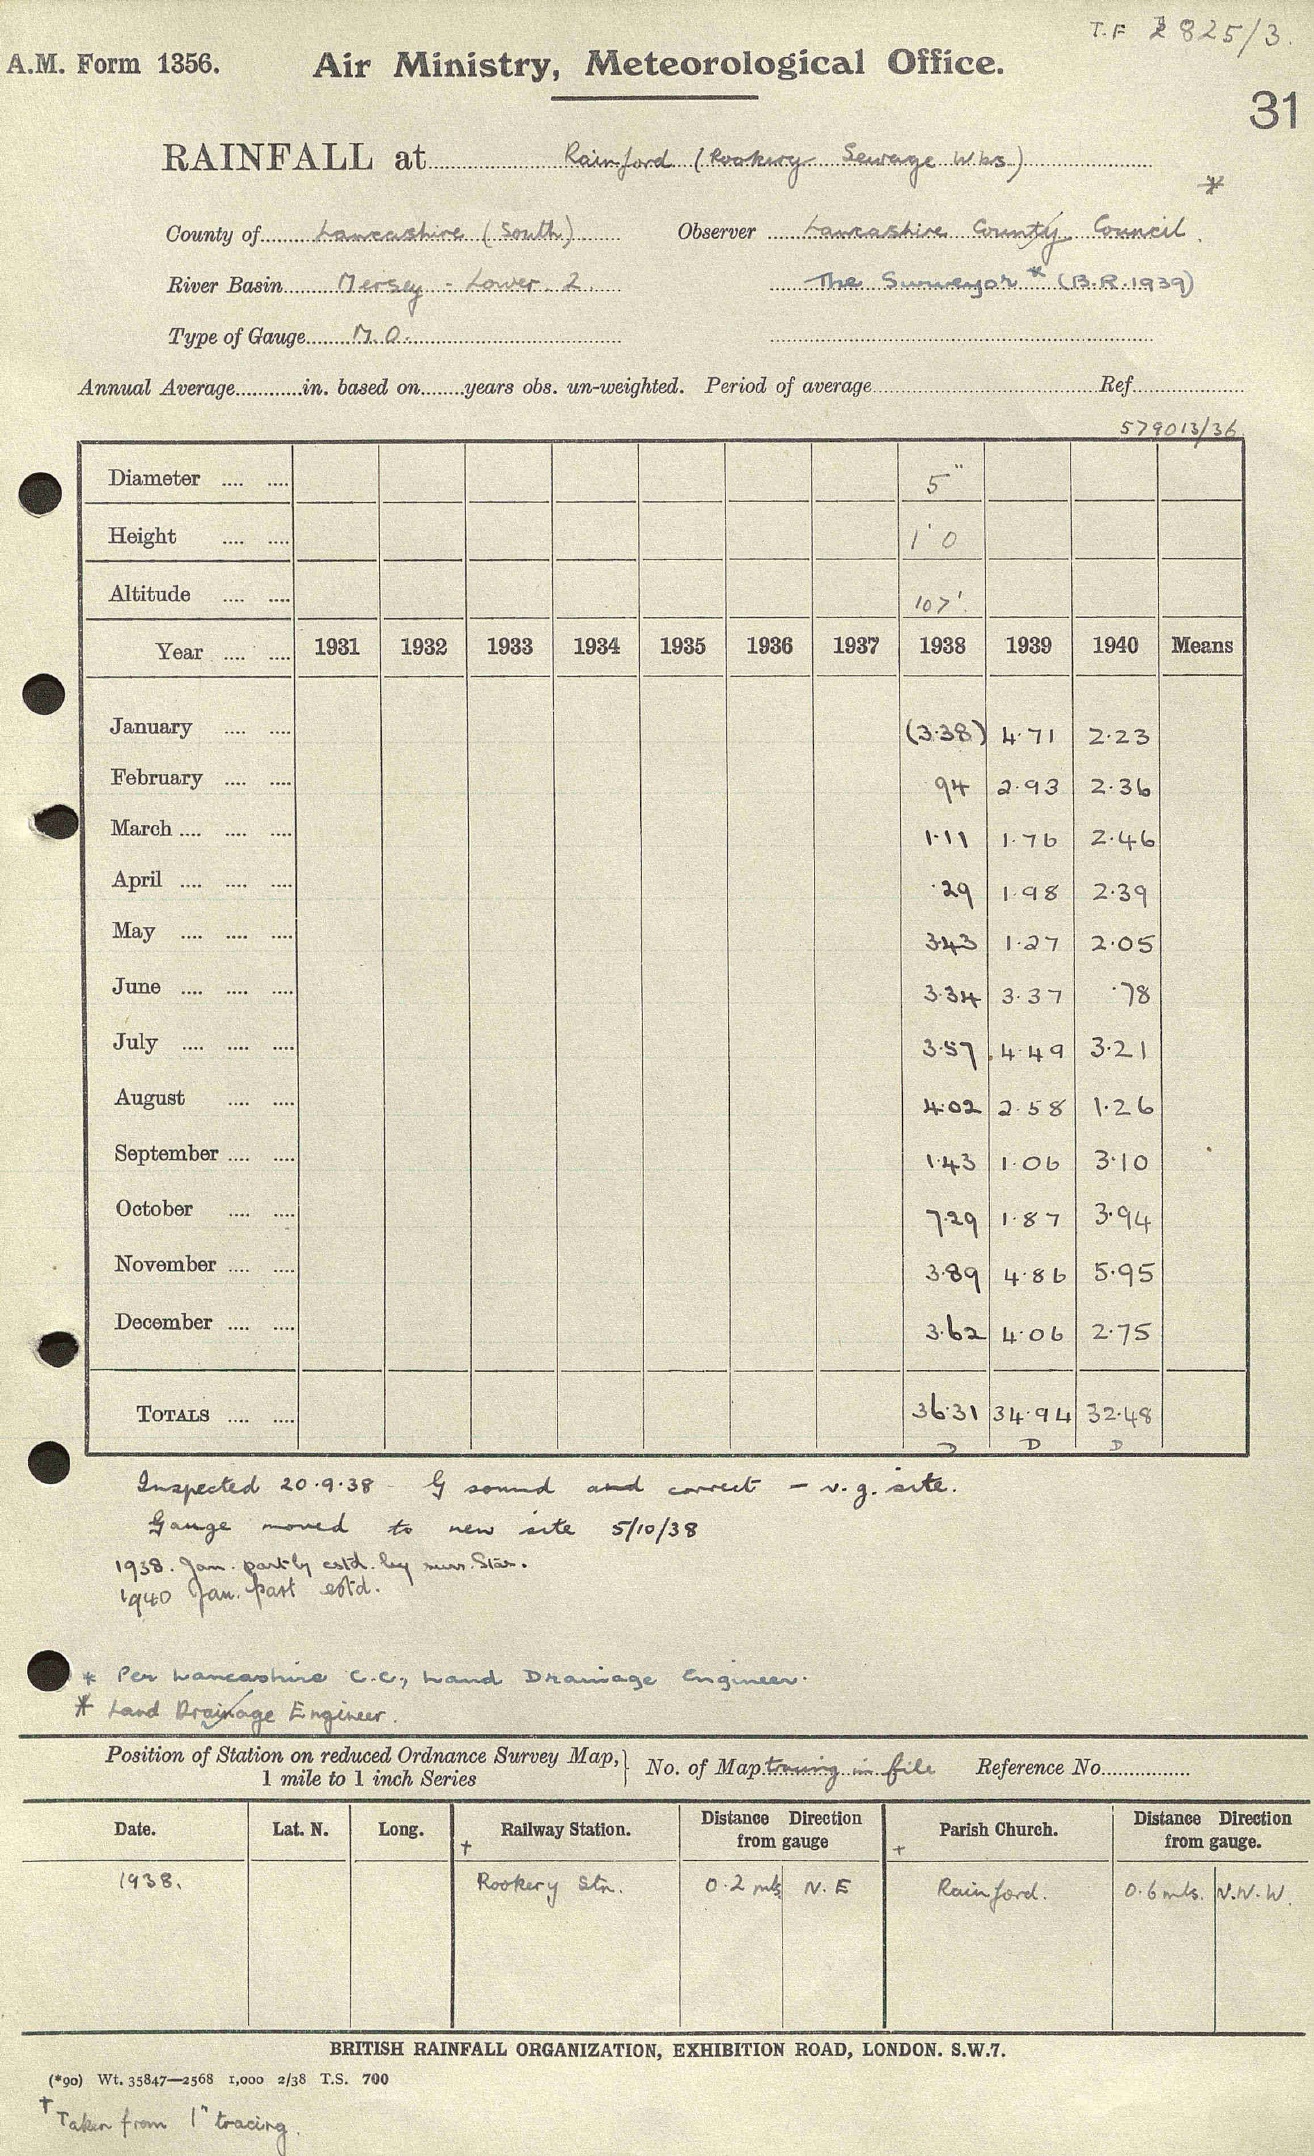 T.F 2825/3.
A.M. Form 1356. Air Ministry, Meteorological Office.
31
RAINFALL at Rainford (Rookery Sewage Wks)
*
County of Lancashire (South) Observer Lancashire County Council.
River Basin Mersey - Lower. 2. The Surveyor * (B.R.1939)
Type of Gauge M.O.
Annual Average in. based on years obs. un-weighted. Period of average Ref.
579013/36
Diameter .... .... 5"
Height .... .... 1' 0
Altitude .... .... 107'.
Year .... .... 1931 1932 1933 1934 1935 1936 1937 1938 1939 1940 Means
January .... .... (3.38) 4.71 2.23
February .... .... 94 2.93 2.36
March .... .... .... 1.11 1.76 2.46
April .... .... .... .29 1.98 2.39
May .... .... .... 3.43 1.27 2.05
June .... .... .... 3.34 3.37 .78
July .... .... .... 3.57 4.49 3.21
August .... .... 4.02 2.58 1.26
September .... .... 1.43 1.06 3.10
October .... .... 7.29 1.87 3.94
November .... .... 3.89 4.86 5.95
December .... .... 3.62 4.06 2.75
TOTALS .... .... 36.31 34.94 32.48
D D D
Inspected 20.9.38 - G sound and correct - v.g. site.
Gauge moved to new site 5/10/38
1938. Jan. partly estd. by surr. Stns.
1940 Jan. part estd.
* Per Lancashire C.C., Land Drainage Engineer.
* Land Drainage Engineer.
Position of Station on reduced Ordnance Survey Map, 1 mile to 1 inch Series } No. of Map tracing in file Reference No.
Date. Lat. N. Long. † Railway Station. Distance Direction from gauge † Parish Church. Distance Direction from gauge.
1938. Rookery Stn. 0.2 mls N.E Rainford. 0.6 mls. N.N.W.
BRITISH RAINFALL ORGANIZATION, EXHIBITION ROAD, LONDON. S.W.7.
(*90) Wt. 35847—2568 1,000 2/38 T.S. 700
† Taken from 1" tracing.